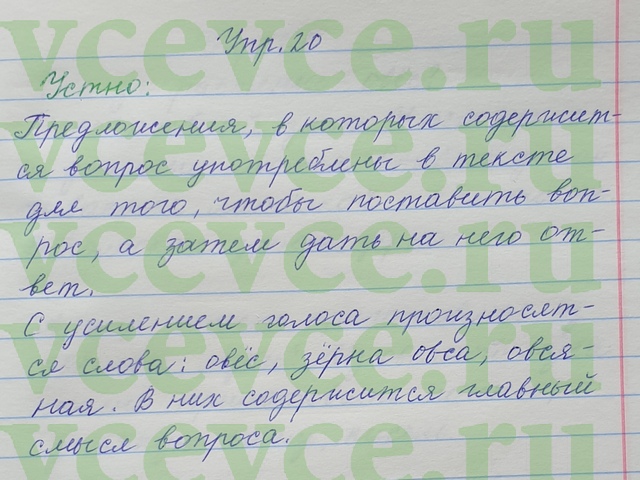 Упр. 20
Устно:
Предложения, в которых содержит-
ся вопрос употреблены в тексте
для того, чтобы поставить воп-
рос, а затем дать на него от-
вет.
С усилением голоса произносят-
ся слова: овёс, зёрна овса, овся-
ная. В них содержится главный
смысл вопроса.
vcevce.ru
vcevce.ru
vcevce.ru
vcevce.ru
vcevce.ru